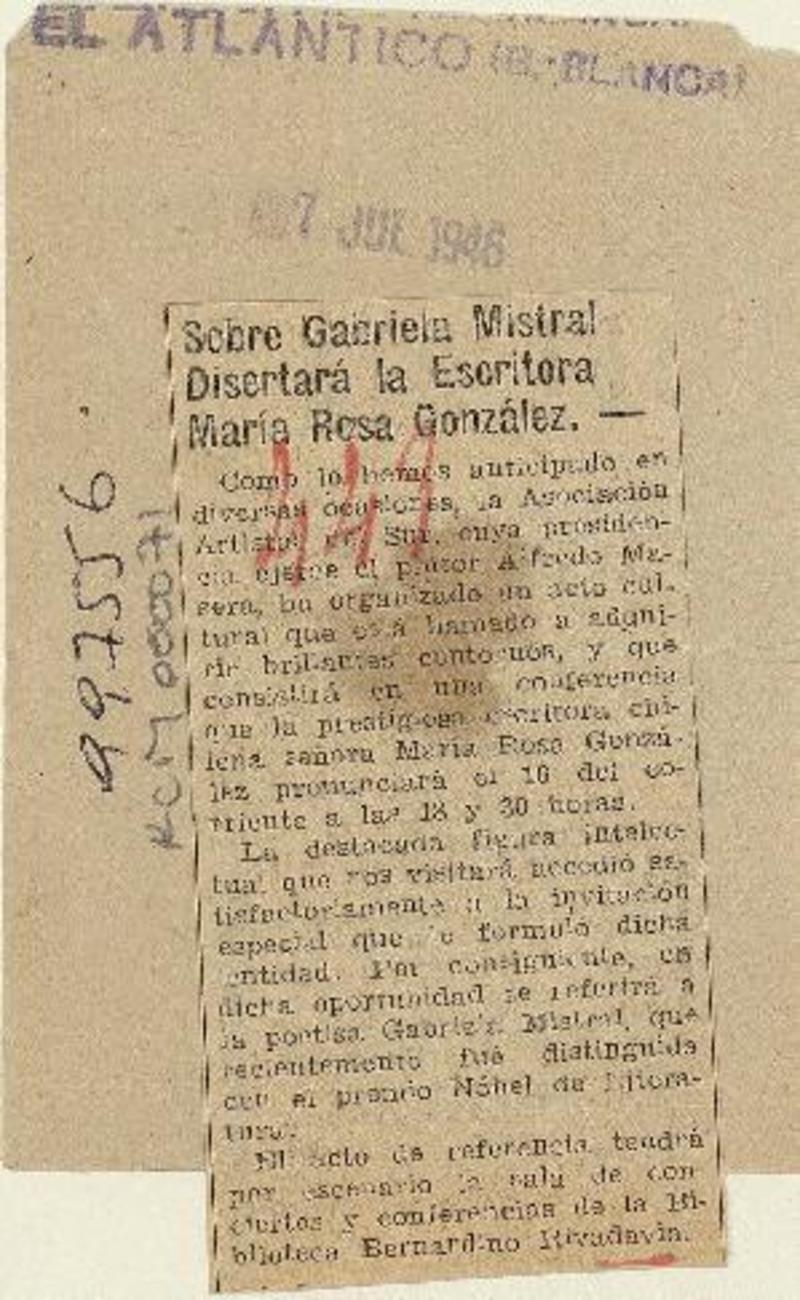 EL ATLANTICO (B. BLANCA)
7 JUL 1946
Sobre Gabriela Mistral
Disertará la Escritora
María Rosa González. —
Como lo hemos anticipado en
diversas ocasiones, la Asociación
Artistas del Sur, cuya presiden-
cia ejerce el pintor Alfredo Ma-
sera, ha organizado un acto cul-
tural que está llamado a adqui-
rir brillantes contornos, y que
consistirá en una conferencia
que la prestigiosa escritora chi-
lena señora María Rosa Gonzá-
lez pronunciará el 16 del co-
rriente a las 18 y 30 horas.
La destacada figura intelec-
tual que nos visitará accedió sa-
tisfactoriamente a la invitación
especial que le formuló dicha
entidad. Por consiguiente, en
dicha oportunidad se referirá a
la poetisa Gabriela Mistral, que
recientemente fué distinguida
con el premio Nóbel de Litera-
tura.
El acto de referencia tendrá
por escenario la sala de con-
ciertos y conferencias de la Bi-
blioteca Bernardino Rivadavia.
997556
441